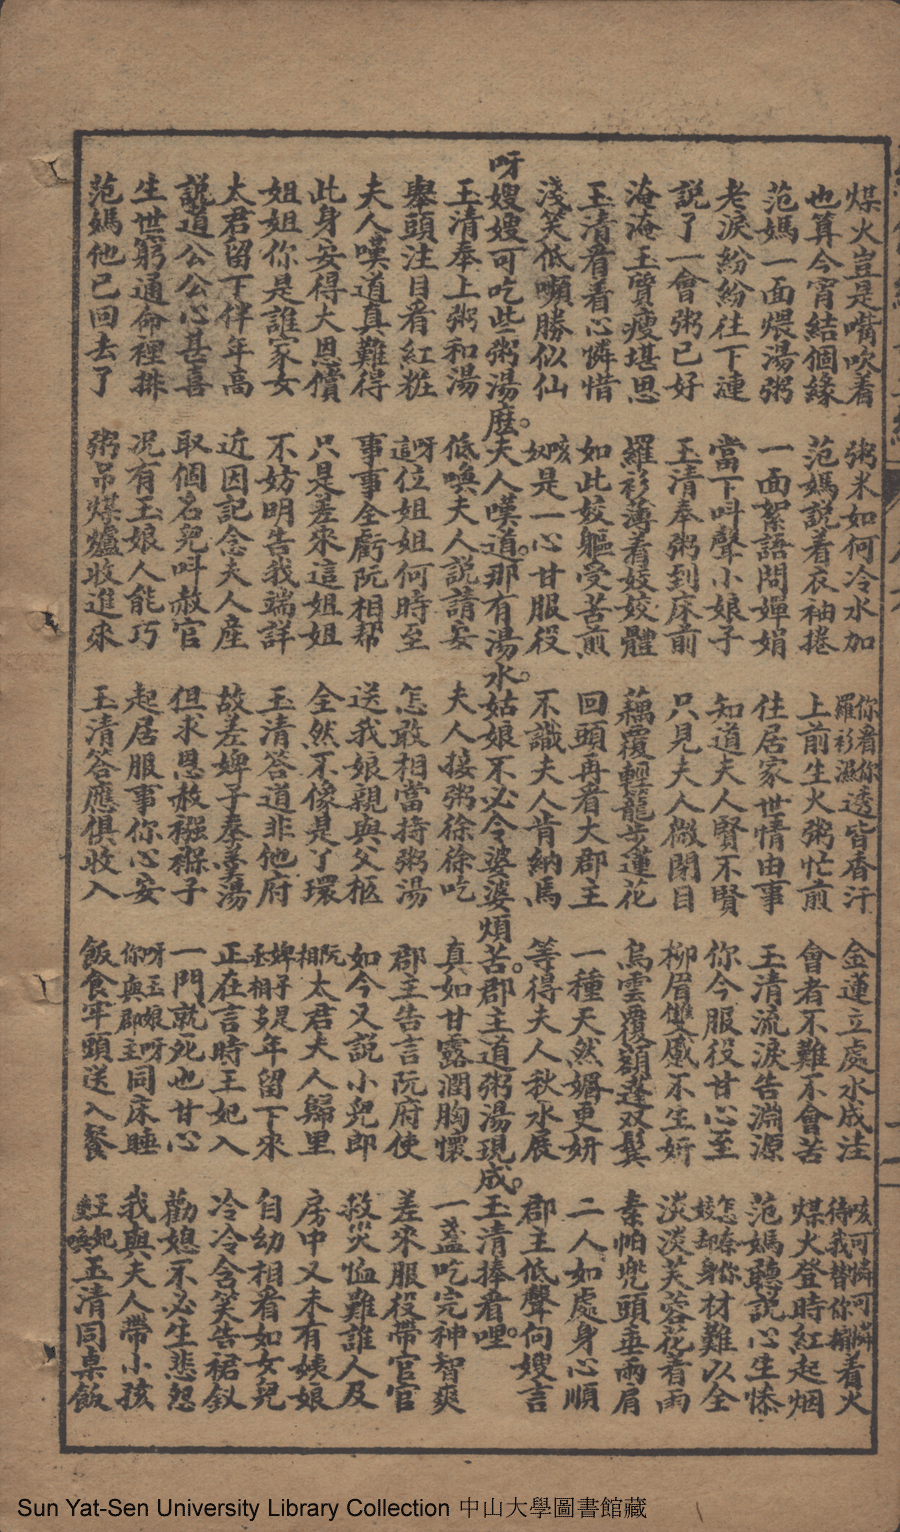 煤火豈是嘴吹着 粥米如何冷水加 你看你羅衫濕透皆香汗 金蓮立處水成洼 咳可憐可憐待我替你擀着火
也算今宵結個緣 范媽說着衣袖捲 上前生火粥忙煎 會者不難不會苦 煤火登時紅起烟
范媽一面煨湯粥 一面絮語問嬋娟 住居家世情由事 玉清流淚告淵源 范媽聽說心生悽
老淚紛紛往下連 當下呌聲小娘子 知道夫人賢不賢 你今服役甘心至 怎奈你姣却身材難以全
說了一會粥已好 玉清奉粥到床前 只見夫人微閉目 柳眉雙蹙不生妍 淡淡芙蓉花着雨
淹淹玉質瘦堪思 羅衫薄着姣姣體 藕覆輕籠步蓮花 烏雲覆額蓬双鬓 素帕兜頭垂兩肩
玉清看着心憐惜 如此姣軀受苦煎 回頭再看大郡主 一種天然媚更妍 二人如處身心順
淺笑低嚬勝似仙 咳奴是一心甘服役 不識夫人肯納焉 等得夫人秋水展 郡主低聲向嫂言
呀嫂嫂可吃些粥湯麽。夫人嘆道。那有湯水。姑娘不必令婆婆煩苦。郡主道粥湯現成。玉清捧着哩。
玉清奉上粥和湯 低喚夫人說請安 夫人接粥徐徐吃 真如甘露潤胸懷 一盞吃完神智爽
舉頭注目看紅粧 呀這位姐姐何時至 怎敢相當持粥湯 郡主告言阮府使 差來服役帶官官
夫人嘆道真難得 事事全虧阮相幫 送我娘親與父柩 如今又說小兒郎 救災恤難誰人及
此身安得大恩償 只是差來這姐姐 全然不像是了環 阮相太君夫人歸里 房中又未有姨娘
姐姐你是誰家女 不妨明告我端詳 玉清答道非他府 婢子是丞相多年留下來 自幼相看如女兒
太君留下伴年高 近因記念夫人産 故差婢子奉羹湯 正在言時王妃入 冷冷含笑告裙釵
說道公公心甚喜 取個名兒呌赦官 但求恩赦襁褓子 一門就死也甘心 勸媳不必生悲怨
生世窮通命裡排 况有玉娘人能巧 起居服事你心安 呀玉娘呀你與郡主同床睡 我與夫人帶小孩
范媽他已回去了 粥吊煤爐收進來 玉清答應俱收入 飯食牢頭送入餐 王妃重喚玉清同桌飯
Sun Yat-Sen University Library Collection 中山大學圖書館藏